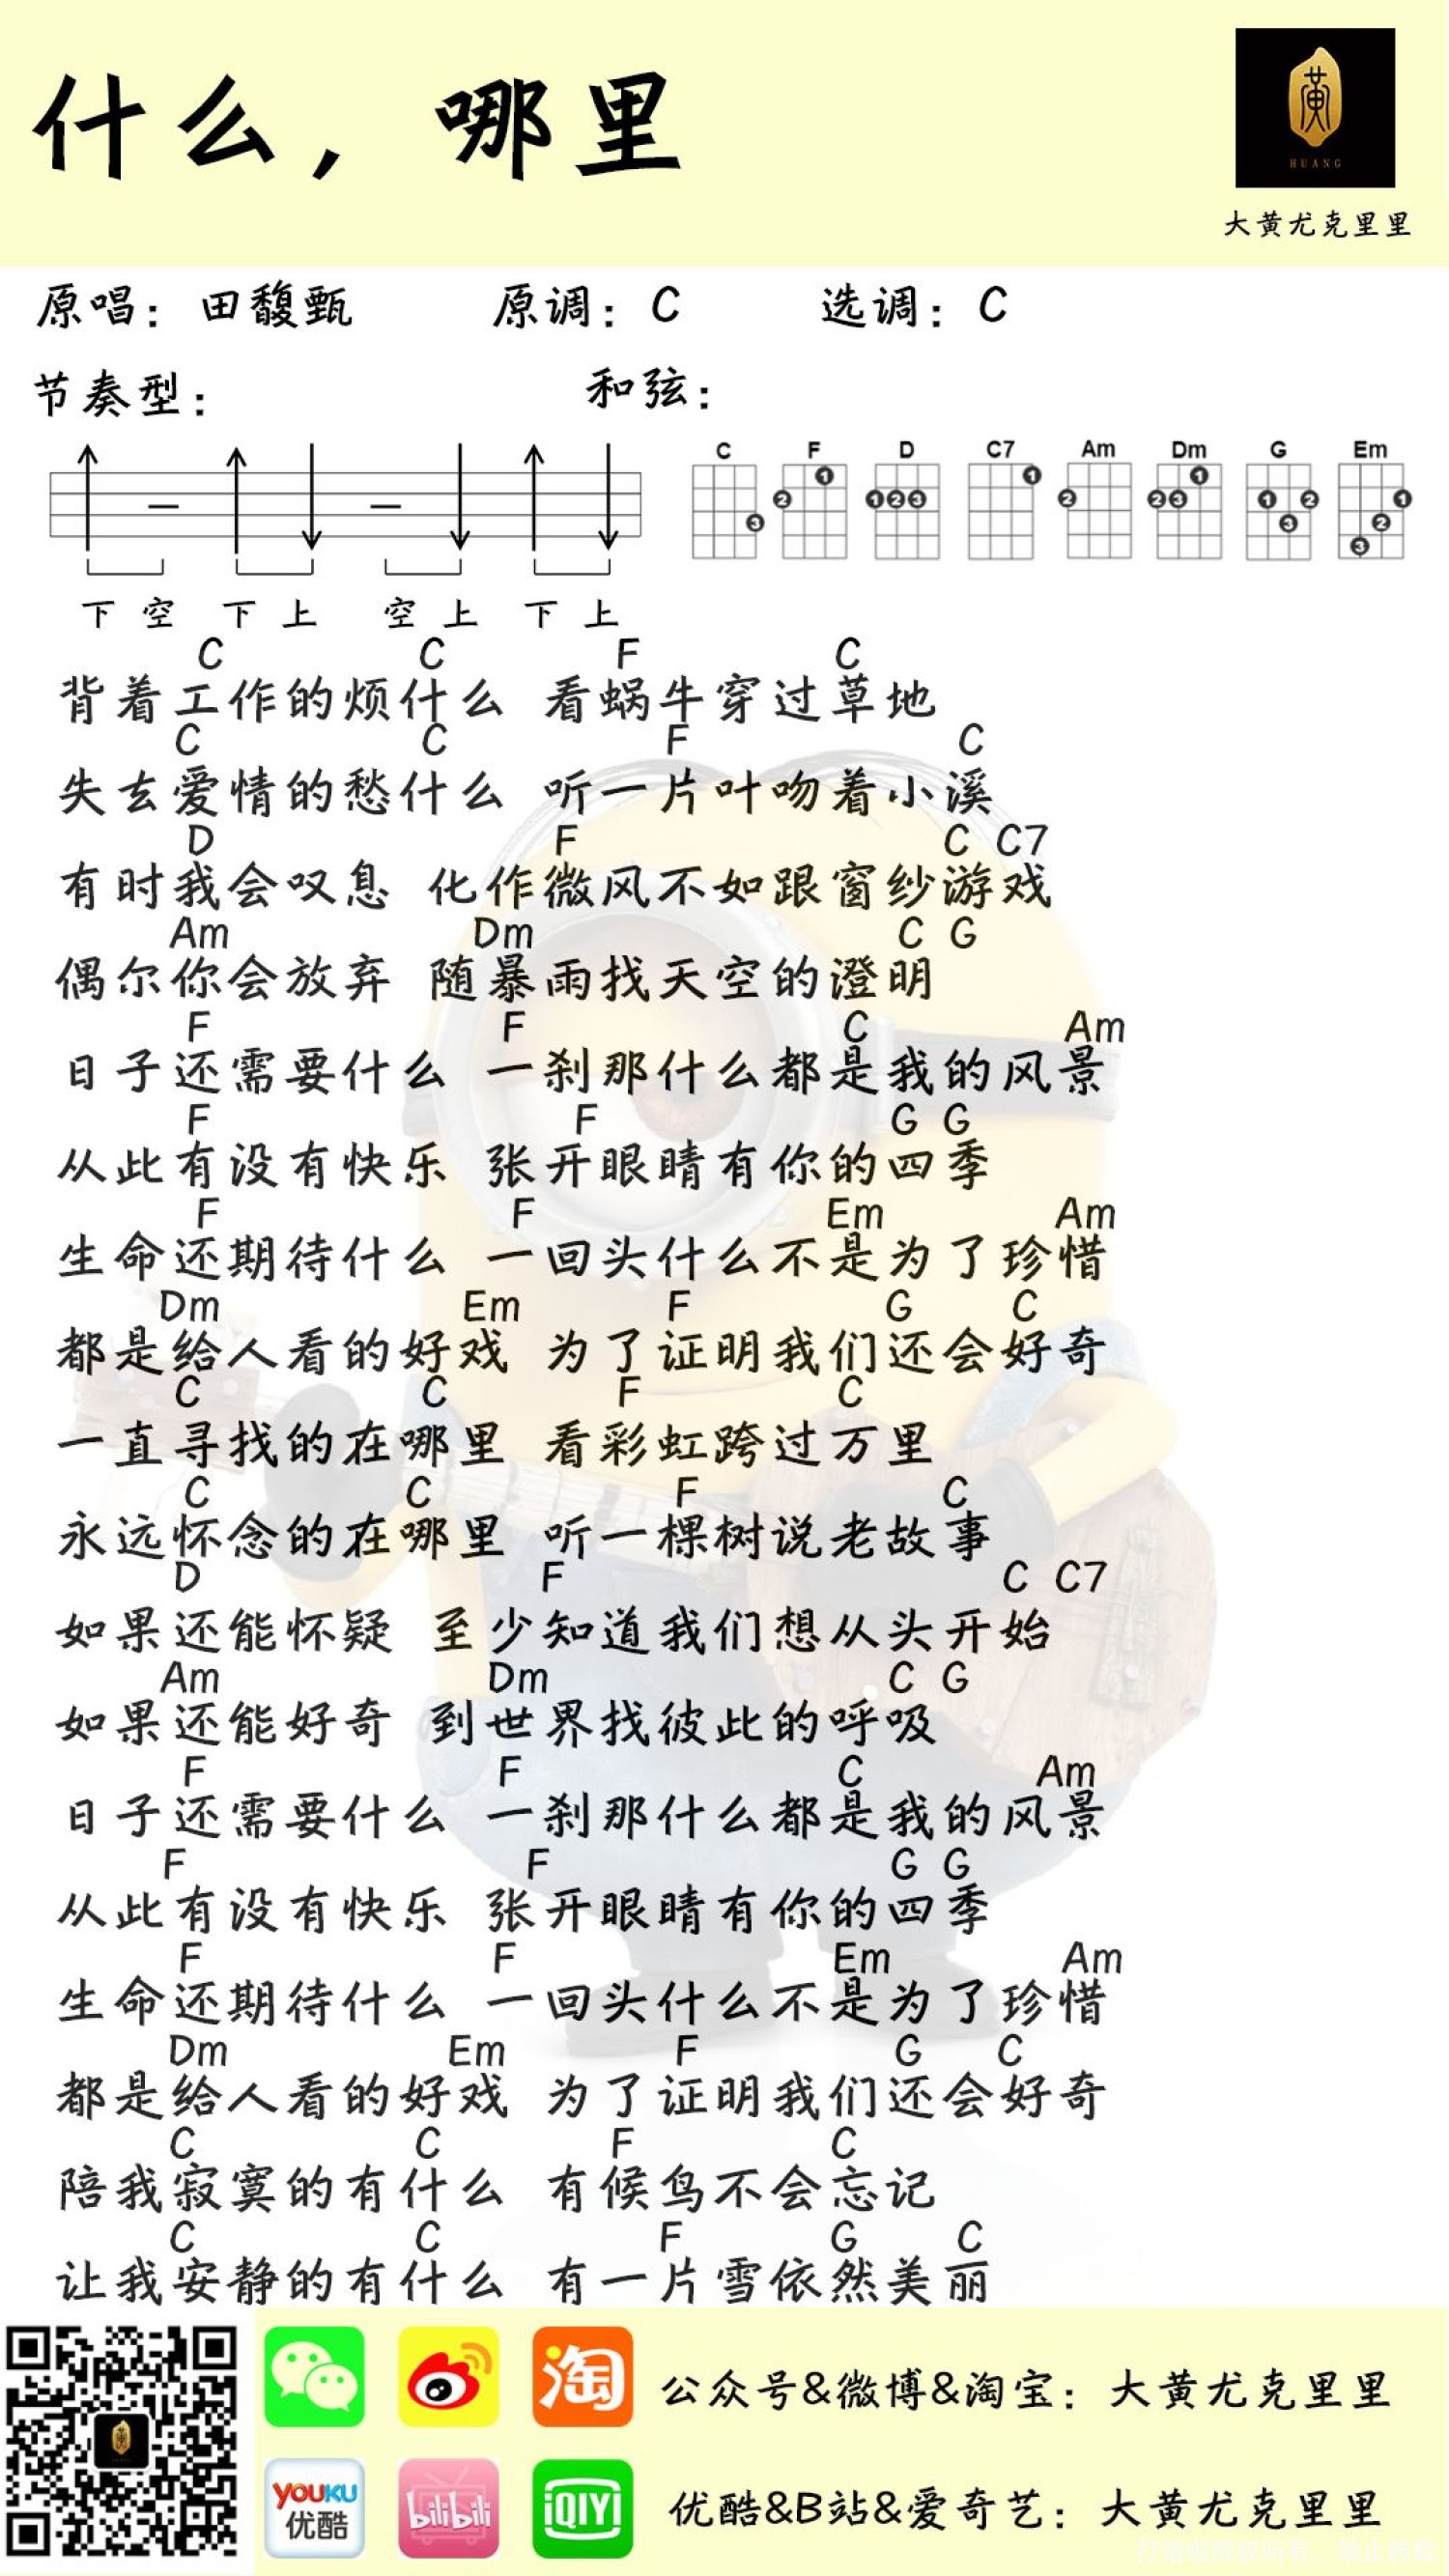 什么，哪里
黄
HUANG
大黄尤克里里
原唱：田馥甄 原调：C 选调：C
节奏型： 和弦：
C F D C7 Am Dm G Em
3 2 1 1 2 3 1 2 2 3 1 1 3 2 3 2 1
下 空 下 上 空 上 下 上
C C F C
背着工作的烦什么 看蜗牛穿过草地
C C F C
失去爱情的愁什么 听一片叶吻着小溪
D F C C7
有时我会叹息 化作微风不如跟窗纱游戏
Am Dm C G
偶尔你会放弃 随暴雨找天空的澄明
F F C Am
日子还需要什么 一刹那什么都是我的风景
F F G G
从此有没有快乐 张开眼睛有你的四季
F F Em Am
生命还期待什么 一回头什么不是为了珍惜
Dm Em F G C
都是给人看的好戏 为了证明我们还会好奇
C C F C
一直寻找的在哪里 看彩虹跨过万里
C C F C
永远怀念的在哪里 听一棵树说老故事
D F C C7
如果还能怀疑 至少知道我们想从头开始
Am Dm C G
如果还能好奇 到世界找彼此的呼吸
F F C Am
日子还需要什么 一刹那什么都是我的风景
F F G G
从此有没有快乐 张开眼睛有你的四季
F F Em Am
生命还期待什么 一回头什么不是为了珍惜
Dm Em F G C
都是给人看的好戏 为了证明我们还会好奇
C C F C
陪我寂寞的有什么 有候鸟不会忘记
C C F G C
让我安静的有什么 有一片雪依然美丽
淘
公众号&微博&淘宝：大黄尤克里里
YOUKU
优酷
bilibili
iQIYI
优酷&B站&爱奇艺：大黄尤克里里